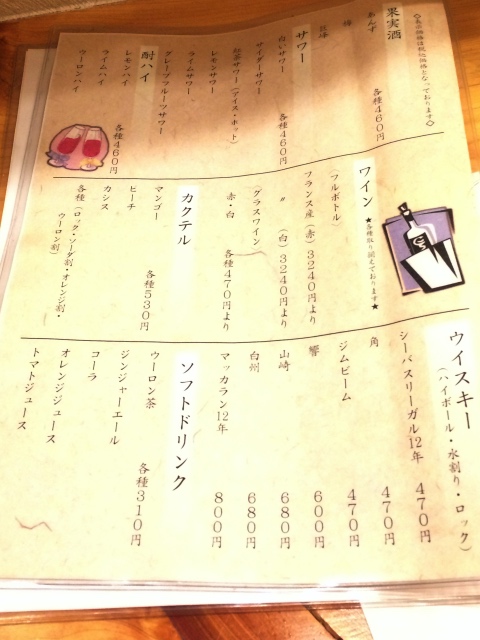 ◇表示価格は税込価格となっております◇
果実酒
あんず
梅
巨峰
各種460円
サワー
白いサワー
サイダーサワー
紅茶サワー(アイス・ホット)
レモンサワー
ライムサワー
グレープフルーツサワー
各種460円
酎ハイ
レモンハイ
ライムハイ
ウーロンハイ
各種460円
ワイン
★各種取り揃えております★
(フルボトル)
フランス産(赤)3240円より
〃 (白)3240円より
(グラスワイン)
赤・白 各種470円より
カクテル
マンゴー
ピーチ
カシス
各種530円
各種(ロック・ソーダ割・オレンジ割・
ウーロン割)
ウイスキー
(ハイボール・水割り・ロック)
シーバスリーガル12年 470円
角 470円
ジムビーム 470円
響 600円
山崎 680円
白州 680円
マッカラン12年 800円
ソフトドリンク
ウーロン茶
ジンジャーエール
コーラ
オレンジジュース
トマトジュース
各種310円